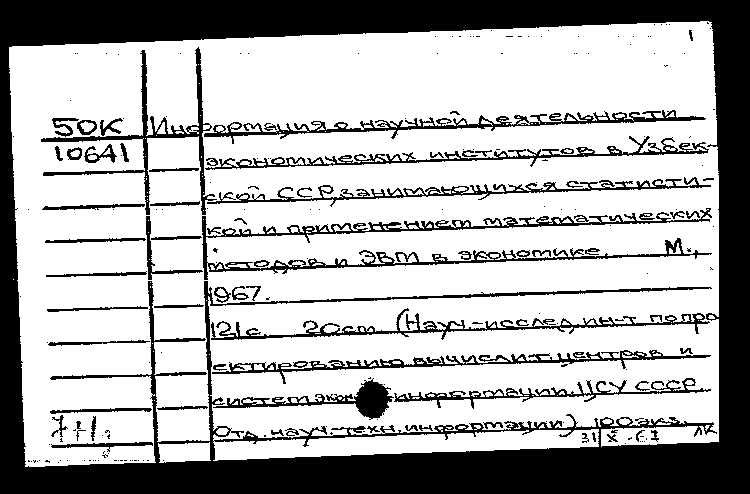 1
50К Информация о научной деятельности
10641 экономических институтов в Узбек-
ской ССР, занимающихся статисти-
кой и применением математических
методов и ЭВМ в экономике. М.,
1967.
121с. 20см (Науч.-исслед. ин-т по про
ектированию вычислит. центров и
систем экон информации. ЦСУ СССР.
Отд. науч.-техн. информации) 100экз.
31 X -67 ЛК